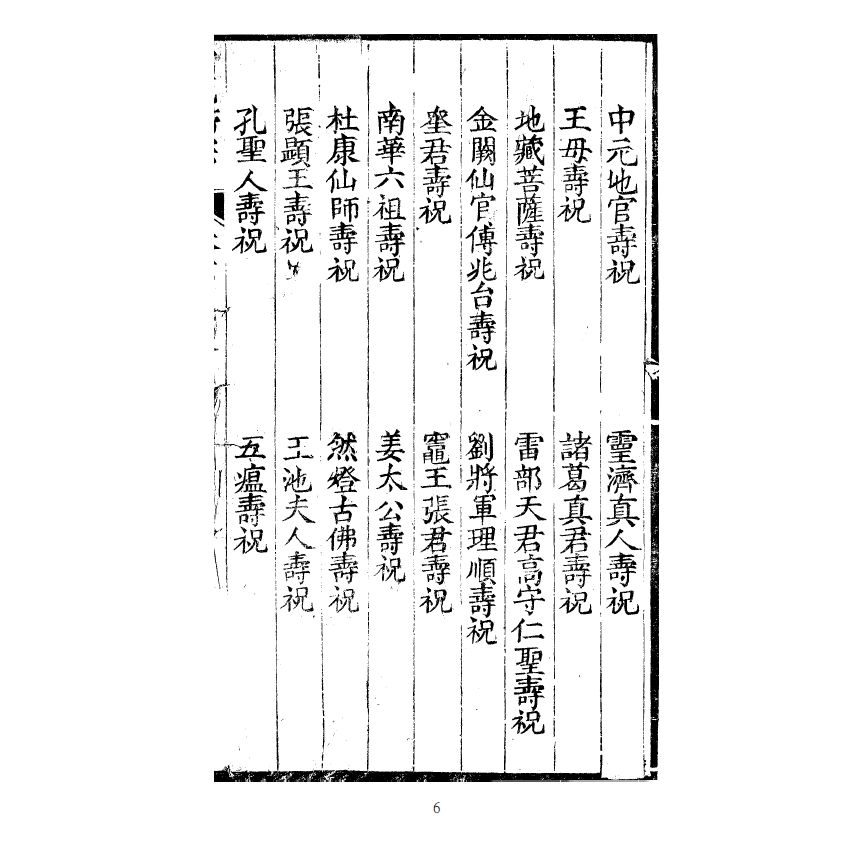 中元地官壽祝　靈濟真人壽祝
王母壽祝　諸葛真君壽祝
地藏菩薩壽祝　雷部天君高守仁聖壽祝
金闕仙官傅兆台壽祝　劉將軍理順壽祝
君壽祝　竈王張君壽祝
南華六祖壽祝　姜太公壽祝
杜康仙師壽祝　然燈古佛壽祝
張顯王壽祝　王池夫人壽祝
孔聖人壽祝　五瘟壽祝
6